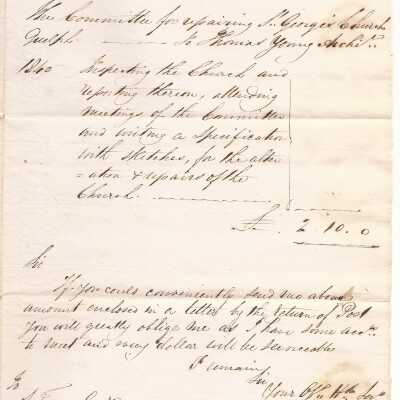 The Committee for repairing St. George's Church
Guelph. ——— To Thomas Young Archit.
1840 Inspecting the Church and
reporting thereon, attending
meetings of the Committee
and writing a Specification
with sketches, for the alter
=ation & repairs of the
Church.
£ . 2 . 10 . 0
Sir
If you could conveniently send me above
amount enclosed in a letter by the return of Post
You will greatly oblige me as I have some accts.
to meet and every dollar will be serviceable
I remain
Sir
Your
To